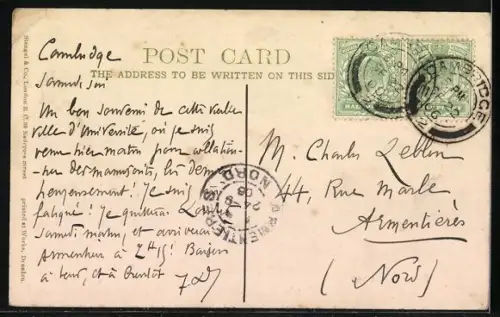 POST CARD
THE ADDRESS TO BE WRITTEN ON THIS SID
Stengel & Co., London E.C. 39 Redcross street
printed at Works, Dresden
Cambridge
Samedi soir
Un bon souvenir de cette vieille
ville d'Université, où je suis
venu hier matin pour collation-
-ner des manuscrits,
heureusement! Je suis
fatigué! Je quitterai
samedi matin, et arriverai
Armentières à 2H15! Baisers
à tous, et à bientôt
M. Charles Leblon
44, Rue Marle
Armentières
(Nord)
CAMBRIDGE
ARMENTIERES
NORD